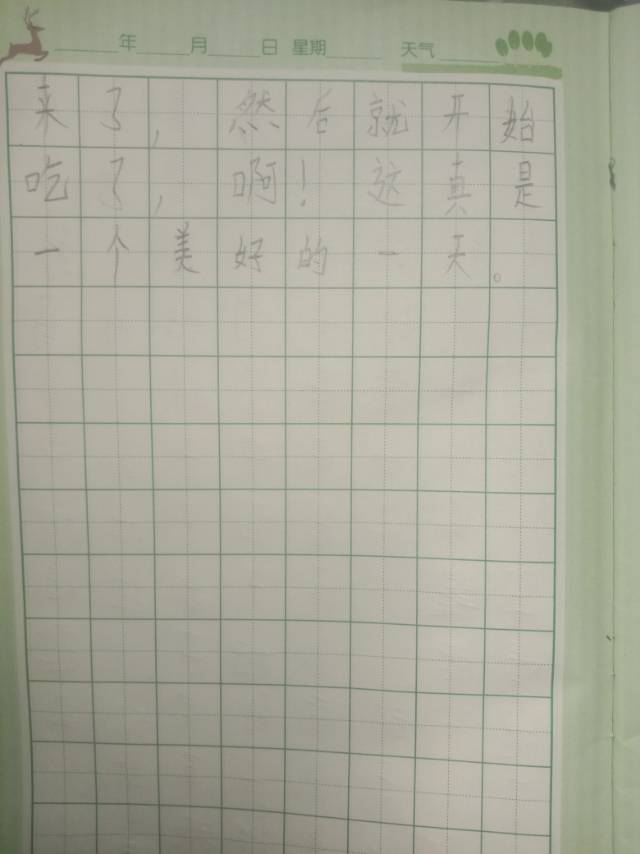 年 月 日 星期 天气
来了，然后就开始
吃了，啊！这真是
一个美好的一天。